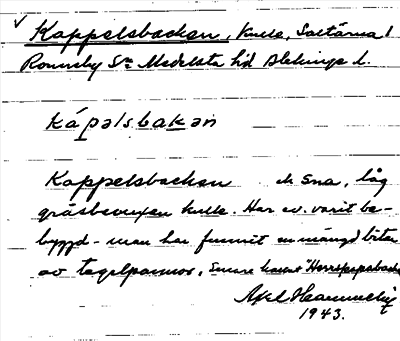 Kappelsbacken, kulle, Saltärna 1
Ronneby Sn Medelsta hd Blekinge l.
kápəlsbakən
Kappelsbacken i Sna, låg
gräsbevuxen kulle. Har ev. varit be-
byggd - man har funnit en mängd bitar
av tegelpannor, "Herrepepsback
Axel
1943.